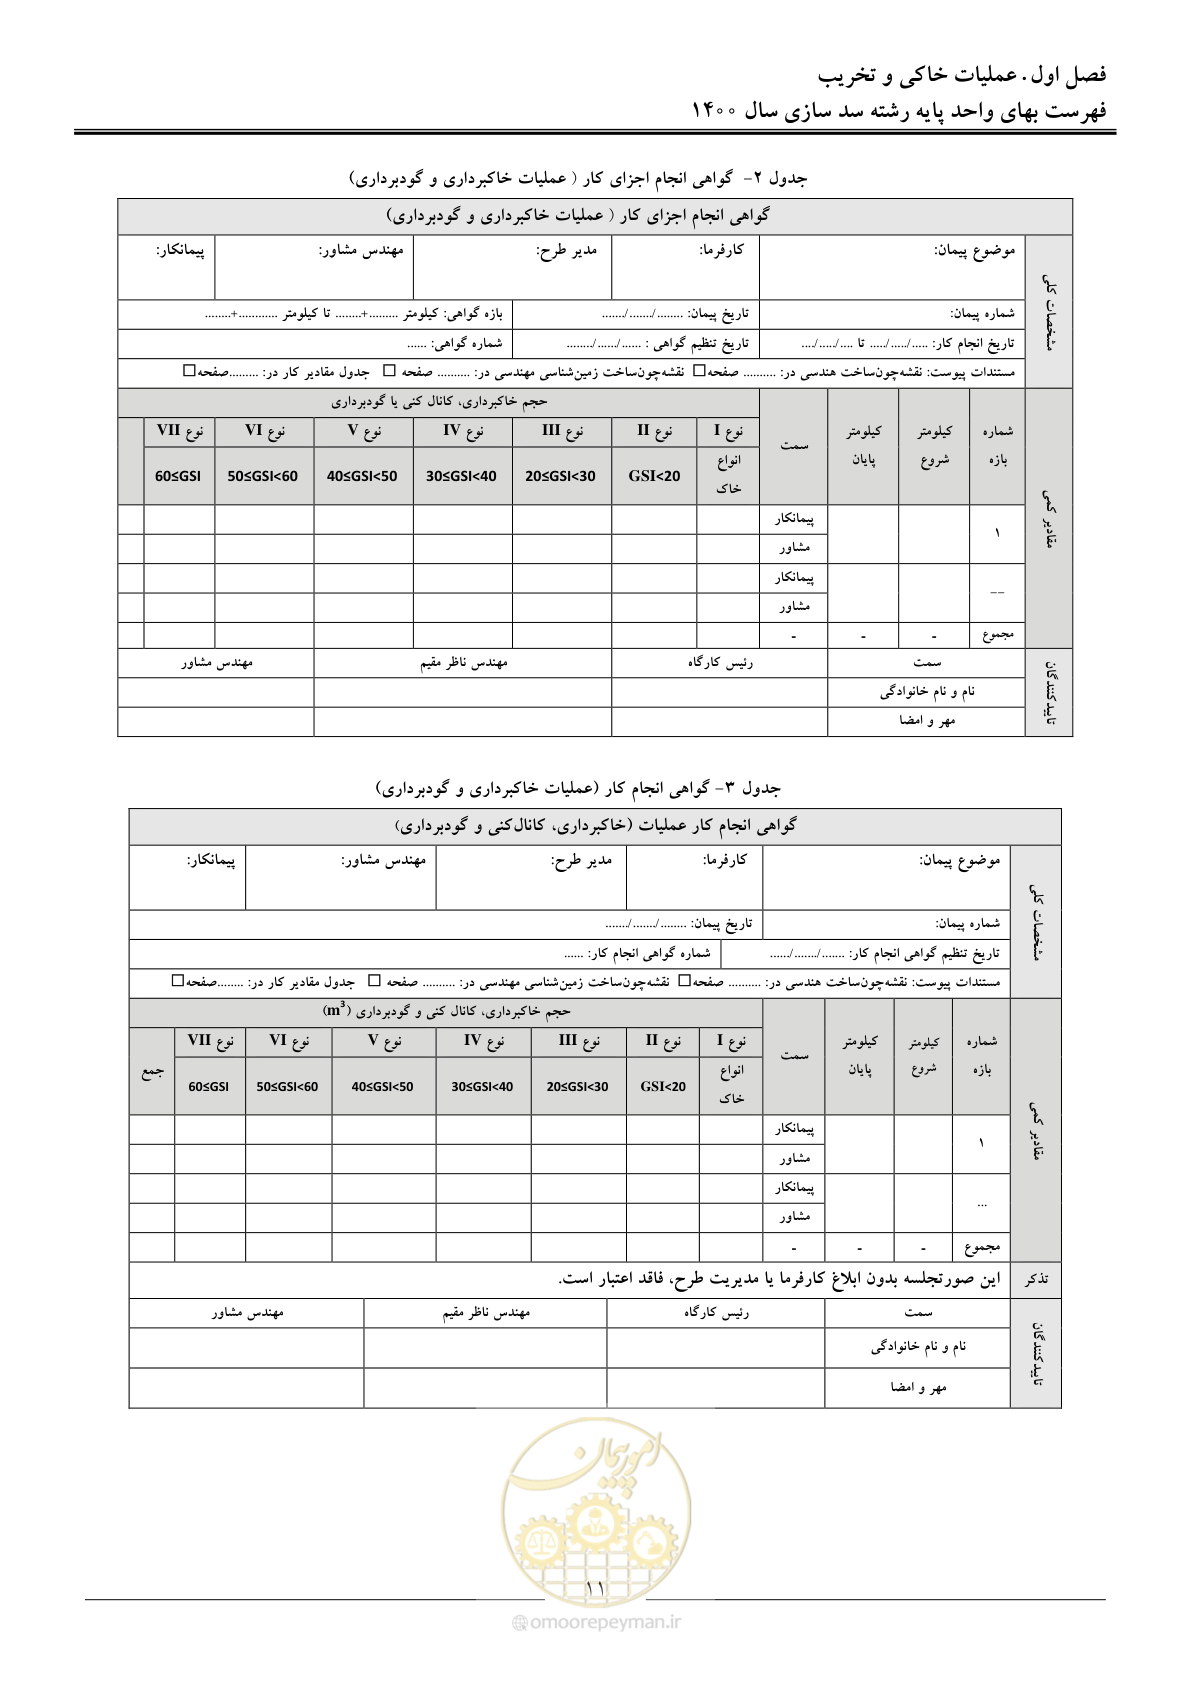 فصل اول. عملیات خاکی و تخریب
فهرست بهای واحد پایه رشته سد سازی سال ۱۴۰۰
جدول ۲- گواهی انجام اجزای کار ( عملیات خاکبرداری و گودبرداری)
گواهی انجام اجزای کار ( عملیات خاکبرداری و گودبرداری)
مشخصات کلی
موضوع پیمان: کارفرما: مدیر طرح: مهندس مشاور: پیمانکار:
شماره پیمان: تاریخ پیمان: ......../......./....... بازه گواهی: کیلومتر .........+........ تا کیلومتر ............+........
تاریخ انجام کار: ...../...../..... تا ..../...../.... تاریخ تنظیم گواهی : ....../....../........ شماره گواهی: ......
مستندات پیوست: نقشه‌چون‌ساخت هندسی در: .......... صفحه☐ نقشه‌چون‌ساخت زمین‌شناسی مهندسی در: .......... صفحه ☐ جدول مقادیر کار در: .........صفحه☐
مقادیر کمی
شماره بازه کیلومتر شروع کیلومتر پایان سمت حجم خاکبرداری، کانال کنی یا گودبرداری
نوع I نوع II نوع III نوع IV نوع V نوع VI نوع VII
انواع خاک GSI<20 20≤GSI<30 30≤GSI<40 40≤GSI<50 50≤GSI<60 60≤GSI
۱ پیمانکار
مشاور
-- پیمانکار
مشاور
مجموع - - -
تاییدکنندگان
سمت رئیس کارگاه مهندس ناظر مقیم مهندس مشاور
نام و نام خانوادگی
مهر و امضا
جدول ۳- گواهی انجام کار (عملیات خاکبرداری و گودبرداری)
گواهی انجام کار عملیات (خاکبرداری، کانال‌کنی و گودبرداری)
مشخصات کلی
موضوع پیمان: کارفرما: مدیر طرح: مهندس مشاور: پیمانکار:
شماره پیمان: تاریخ پیمان: ......../......./.......
تاریخ تنظیم گواهی انجام کار: ......./......./...... شماره گواهی انجام کار: ......
مستندات پیوست: نقشه‌چون‌ساخت هندسی در: .......... صفحه☐ نقشه‌چون‌ساخت زمین‌شناسی مهندسی در: .......... صفحه ☐ جدول مقادیر کار در: ........صفحه☐
مقادیر کمی
شماره بازه کیلومتر شروع کیلومتر پایان سمت حجم خاکبرداری، کانال کنی و گودبرداری (m³)
نوع I نوع II نوع III نوع IV نوع V نوع VI نوع VII جمع
انواع خاک GSI<20 20≤GSI<30 30≤GSI<40 40≤GSI<50 50≤GSI<60 60≤GSI
۱ پیمانکار
مشاور
... پیمانکار
مشاور
مجموع - - -
تذکر این صورتجلسه بدون ابلاغ کارفرما یا مدیریت طرح، فاقد اعتبار است.
تاییدکنندگان
سمت رئیس کارگاه مهندس ناظر مقیم مهندس مشاور
نام و نام خانوادگی
مهر و امضا
امور پیمان
۱۱
omoorepeyman.ir